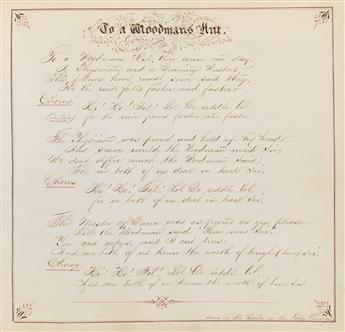 To a Woodmans Hut.
To a Woodmans Hut, there came one day,
A Physician and a Dancing Master
This fellows house must serve said they,
For the rain falls faster and faster
Chorus
Ha! Ha! Fal! Lal De riddle lol
for the rain pours faster and faster
The Physician was proud and held up his head
And scarce would the Woodman made Sir;
We don't differ much the Woodman Said
For we both of us deal in bark Sir;
Chorus
Ha! Ha! Fal! Lal De riddle lol,
for we both of us deal in bark Sir;
The Master of Dance was as you please
Till the Woodman said
You cut capers, and I cut trees,
And we both of us know the worth of bough (bow) Sir!
Chorus
Ha! Ha! Fal! Lal De riddle lol,
And we both of us know the worth of bow Sir!
Sung by in the